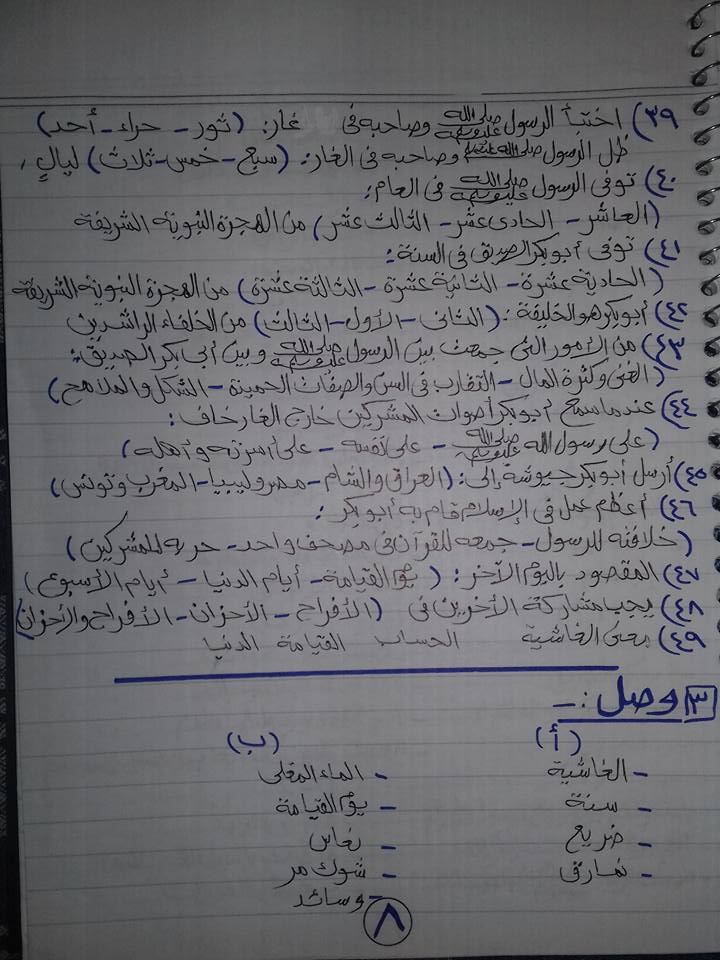 ٣٩) اختبأ الرسول ﷺ وصاحبه فى غار: (ثور - حراء - أحد)
ظل الرسول ﷺ وصاحبه فى الغار: (سبع - خمس - ثلاث) ليالٍ
٤٠) توفى الرسول ﷺ فى العام:
(العاشر - الحادى عشر - الثالث عشر) من الهجرة النبوية الشريفة
٤١) توفى أبو بكر الصديق فى السنة:
(الحادية عشرة - الثانية عشرة - الثالثة عشرة) من الهجرة النبوية الشريفة
٤٢) أبو بكر هو الخليفة: (الثانى - الأول - الثالث) من الخلفاء الراشدين
٤٣) من الأمور التى جمعت بين الرسول ﷺ وبين أبى بكر الصديق:
(الغنى وكثرة المال - التقارب فى السن والصفات الحميدة - الشكل والملامح)
٤٤) عندما سمع أبو بكر أصوات المشركين خارج الغار خاف:
(على رسول الله ﷺ - على نفسه - على أسرته وأهله)
٤٥) أرسل أبو بكر جيوشه إلى: (العراق والشام - مصر وليبيا - المغرب وتونس)
٤٦) أعظم عمل فى الإسلام قام به أبو بكر:
(خلافته للرسول - جمعه للقرآن فى مصحف واحد - حربه للمشركين)
٤٧) المقصود باليوم الآخر: (يوم القيامة - أيام الدنيا - أيام الأسبوع)
٤٨) يجب مشاركة الآخرين فى (الأفراح - الأحزان - الأفراح والأحزان)
٤٩) معنى الغاشية الحساب القيامة الدنيا
٣ وصل :-
(أ) (ب)
- الغاشية - الماء المغلى
- سنة - يوم القيامة
- ضريع - نعاس
- نمارق - شوك مر
- وسائد
٨